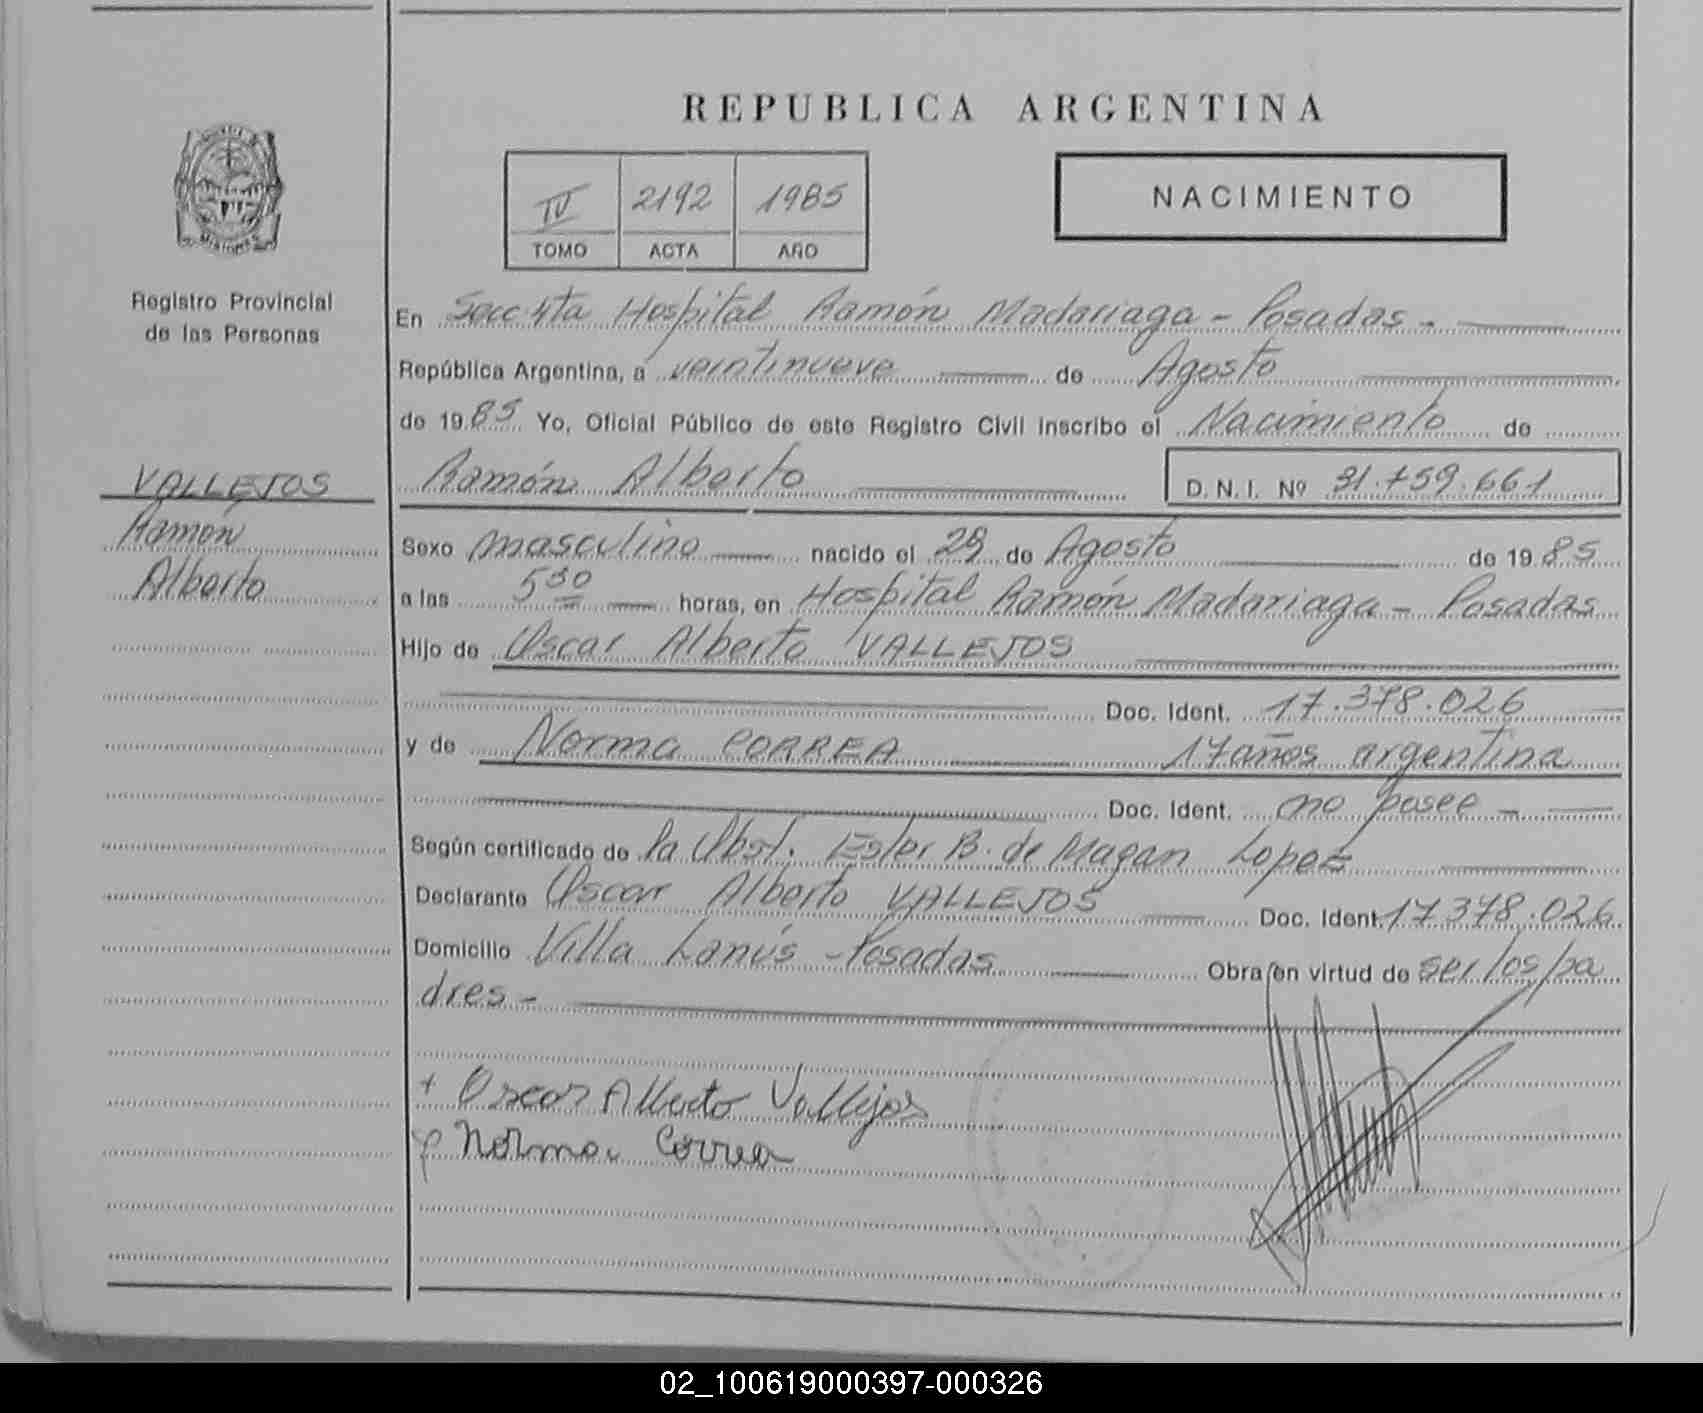 REPUBLICA ARGENTINA
MISIONES
Registro Provincial
de las Personas
IV 2192 1985
TOMO ACTA AÑO
NACIMIENTO
En Secc 4ta Hospital Ramón Madariaga - Posadas -
República Argentina, a veintinueve de Agosto
de 1985 Yo, Oficial Público de este Registro Civil inscribo el Nacimiento de
VALLEJOS
Ramón Alberto D. N. I. Nº 31.759.661
Ramón
Alberto
Sexo masculino nacido el de Agosto de 1985
a las 5 30 horas, en Hospital Ramón Madariaga - Posadas
Hijo de Oscar Alberto VALLEJOS
Doc. Ident. 17.378.026
y de Norma CORREA 17 años argentina
Doc. Ident. no posee -
Según certificado de la Obst. Ester B. de Magan Lopez
Declarante Oscar Alberto VALLEJOS Doc. Ident. 17.378.026
Domicilio Villa Lanús - Posadas Obra en virtud de ser los pa
dres -
+ Oscar Alberto Vallejos
Norma Correa
02_100619000397-000326